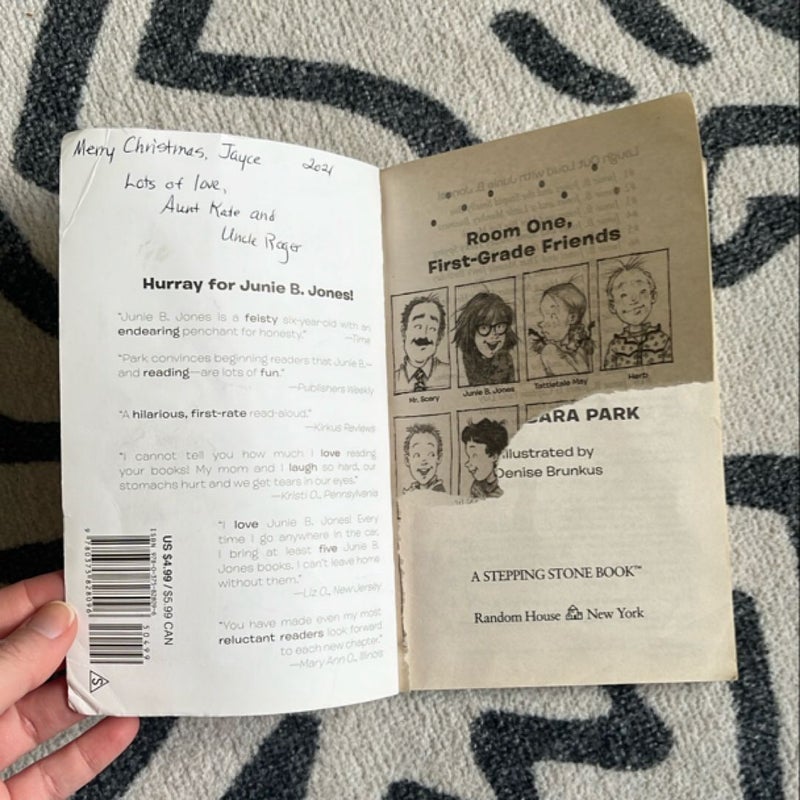 Merry Christmas, Jayce 2021
Lots of love,
Aunt Kate and
Uncle Roger
Hurray for Junie B. Jones!
"Junie B. Jones is a feisty six-year-old with an
endearing penchant for honesty."
—Time
"Park convinces beginning readers that Junie B.—
and reading—are lots of fun."
—Publishers Weekly
"A hilarious, first-rate read-aloud."
—Kirkus Reviews
"I cannot tell you how much I love reading
your books! My mom and I laugh so hard, our
stomachs hurt and we get tears in our eyes."
—Kristi O., Pennsylvania
"I love Junie B. Jones! Every
time I go anywhere in the car,
I bring at least five Junie B.
Jones books. I can't leave home
without them."
—Liz O., New Jersey
"You have made even my most
reluctant readers look forward
to each new chapter."
—Mary Ann O., Illinois
US $4.99 / $5.99 CAN
50499
S
Laugh Out Loud with Junie B. Jones!
Room One,
First-Grade Friends
Mr. Scary
Junie B. Jones
Tattletale May
Herb
ARA PARK
illustrated by
Denise Brunkus
A STEPPING STONE BOOK™
Random House New York